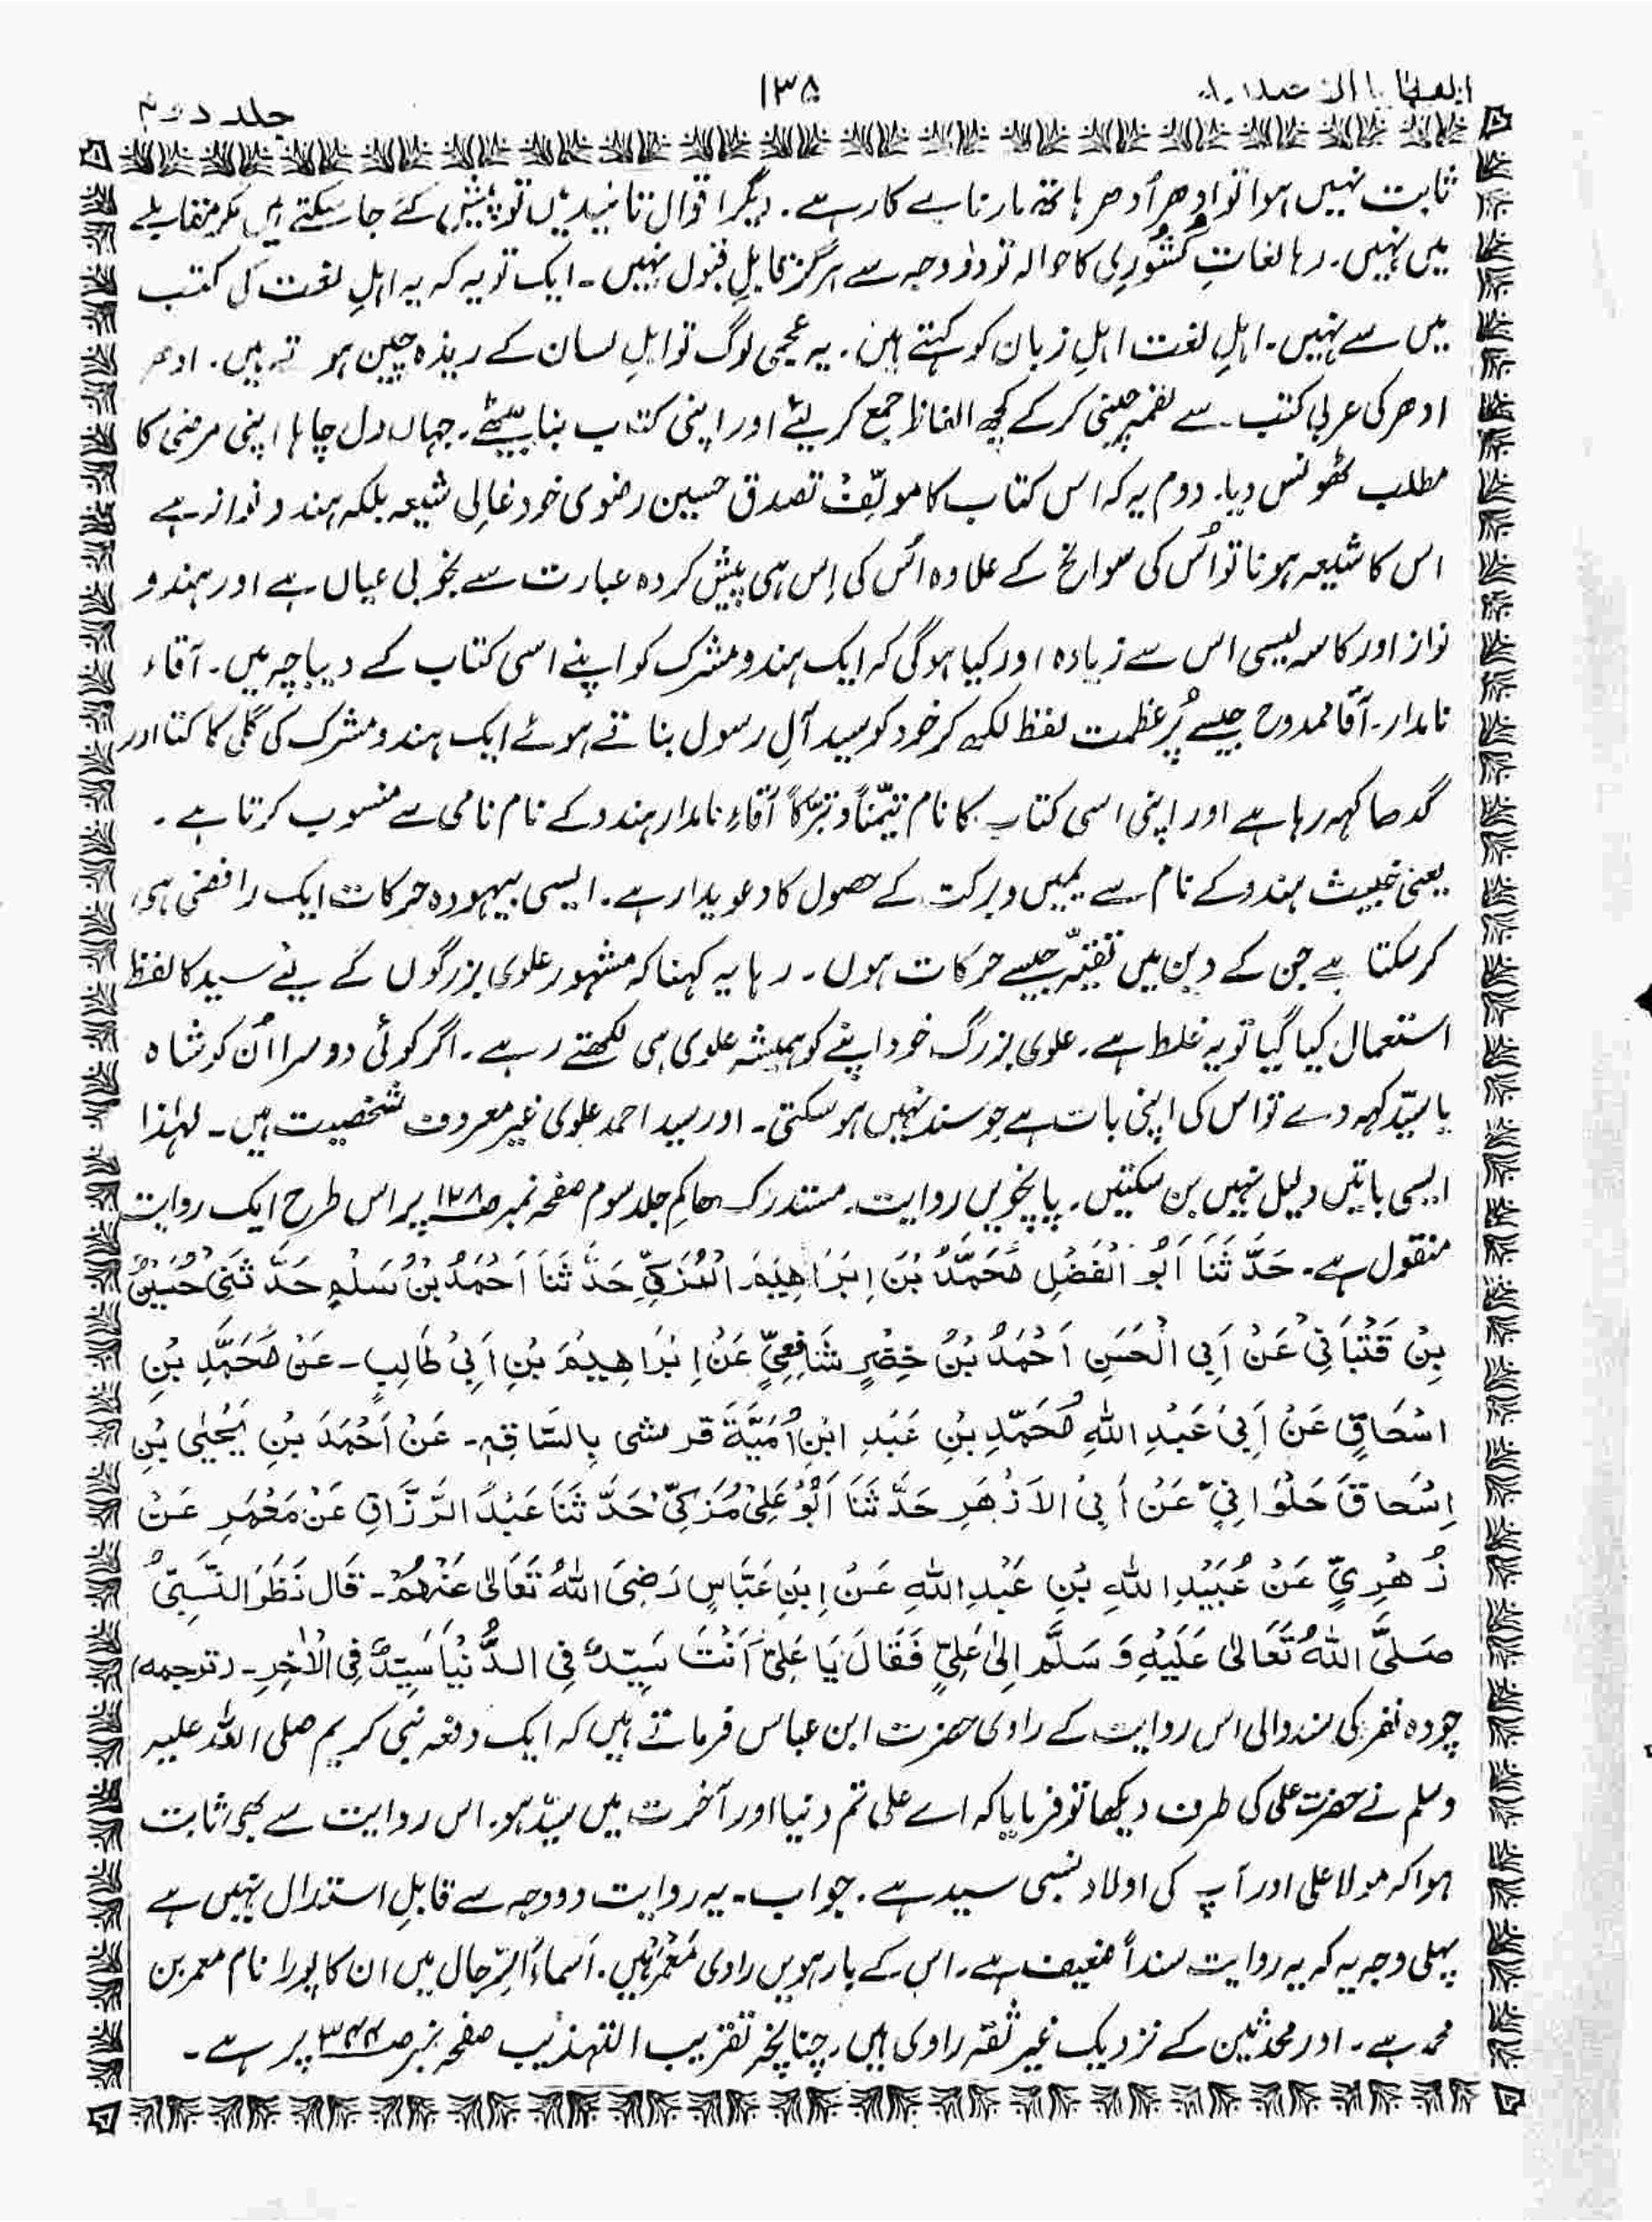 العطایا الاحمدیہ
۱۳۵
جلد دوم
ثابت نہیں ہوا تو ادھر اُدھر ہاتھ مارنا بے کار ہے۔ دیگر اقوال تائید میں تو پیش کئے جا سکتے ہیں مگر مقابلے
میں نہیں۔ رہا لغاتِ کشوری کا حوالہ تو دو وجہ سے ہرگز قابلِ قبول نہیں۔ ایک تو یہ کہ یہ اہلِ لغت کی کتب
میں سے نہیں۔ اہلِ لغت اہلِ زبان کو کہتے ہیں۔ یہ عجمی لوگ تو اہلِ لسان کے ریزہ چین ہوتے ہیں۔ ادھر
ادھر کی عربی کتب سے لقمہ چینی کر کے کچھ الفاظ جمع کر لیئے اور اپنی کتاب بنا بیٹھے۔ جہاں دل چاہا اپنی مرضی کا
مطلب ٹھونس دیا۔ دوم یہ کہ اس کتاب کا مولّف تصدق حسین رضوی خود غالی شیعہ بلکہ ہندو نواز ہے
اس کا شیعہ ہونا تو اُس کی سوانح کے علاوہ اُس کی اِس ہی پیش کردہ عبارت سے بخوبی عیاں ہے اور ہندو
نواز اور کاسہ لیسی اس سے زیادہ اور کیا ہوگی کہ ایک ہندو مشرک کو اپنے اسی کتاب کے دیباچہ میں۔ آقاء
نامدار۔ آقا ممدوح جیسے پُر عظمت لفظ لکھ کر خود کو سید آلِ رسول بناتے ہوئے ایک ہندو مشرک کی گلی کا کتا اور
گدھا کہہ رہا ہے اور اپنی اسی کتاب کا نام تیمّناً و تبرّکاً آقاءِ نامدار ہندو کے نام نامی سے منسوب کرتا ہے۔
یعنی خبیث ہندو کے نام سے یمیں و برکت کے حصول کا دعویدار ہے۔ ایسی بیہودہ حرکات ایک رافضی ہی
کر سکتا ہے جن کے دین میں تقیّہ جیسے حرکات ہوں۔ رہا یہ کہنا کہ مشہور علوی بزرگوں کے لیے سید کا لفظ
استعمال کیا گیا تو یہ غلط ہے۔ علوی بزرگ خود اپنے کو ہمیشہ علوی ہی لکھتے رہے۔ اگر کوئی دوسرا اُن کو شاہ
یا سیّد کہہ دے تو اس کی اپنی بات ہے جو سند نہیں ہو سکتی۔ اور سید احمد علوی غیر معروف شخصیت ہیں۔ لہٰذا
ایسی باتیں دلیل نہیں بن سکتیں۔ پانچویں روایت۔ مستدرک حاکم جلد سوم صفحہ نمبر ص۱۲۸ پر اس طرح ایک روایت
منقول ہے۔ حَدَّثَنَا اَبُو الْفَضْلِ مُحَمَّدُ بْنَ اِبْرَاهِيْمَ الْمُزَكِّي حَدَّثَنَا اَحْمَدُ بْنُ سَلْمِہٖ حَدَّثَنِیْ حُسَيْنُ
بِنْ قَتْبَانِیْ عَنْ اَبِی الْحَسَنِ اَحْمَدُ بْنُ خِضْرٍ شَافِعِيٍّ عَنْ اِبْرَاهِيْمَ بْنِ اَبِیْ طَالِبٍ۔ عَنْ مُحَمَّدِ بْنِ
اسْحَاقٍ عَنْ اَبِیْ عَبْدِ اللهِ مُحَمَّدِ بْنِ عَبْدِ ابْنِ اُمَيَّةَ قرمشی بِالسَّاقِہٖ۔ عَنْ اَحْمَدَ بْنِ يَحْيٰی بْنِ
اِسْحَاقَ حَلْوَانِیٍّ عَنْ اَبِیْ الاَزْهَرِ حَدَّثَنَا اَبُوْ عَلِیْ مُزَكِّیْ حَدَّثَنَا عَبْدُ الرَّزَّاقِ عَنْ مَعْمَرٍ عَنْ
زُهْرِيٍّ عَنْ عُبَيْدِ اللهِ بْنِ عَبْدِ اللهِ عَنْ اِبْنِ عَبَّاسٍ رَضِیَ اللهُ تَعَالٰی عَنْهُمْ۔ قَالَ نَظَرَ النَّبِیُّ
صَلَّی اللهُ تَعَالٰی عَلَيْهِ وَ سَلَّمَ اِلٰی عَلِيٍّ فَقَالَ يَا عَلِیُّ اَنْتَ سَيِّدٌ فِی الدُّنْيَا سَيِّدٌ فِی الْاٰخِرِ۔ (ترجمہ)
چودہ نفر کی سند والی اس روایت کے راوی حضرت ابن عباس فرماتے ہیں کہ ایک دفعہ نبی کریم صلی اللہ علیہ
وسلم نے حضرت علی کی طرف دیکھا تو فرمایا کہ اے علی تم دنیا اور آخرت میں سیّد ہو۔ اس روایت سے بھی ثابت
ہوا کہ مولا علی اور آپ کی اولاد نسبی سید ہے۔ جواب۔ یہ روایت دو وجہ سے قابلِ استدلال نہیں ہے
پہلی وجہ یہ کہ یہ روایت سنداً ضعیف ہے۔ اس کے بارہویں راوی مَعْمَر ہیں۔ اَسماءُ الرِّجال میں ان کا پورا نام معمر بن
محمد ہے۔ اور محدثین کے نزدیک غیر ثقہ راوی ہیں۔ چنانچہ تقریب التہذیب صفحہ نمبر ص۳۴۴ پر ہے۔